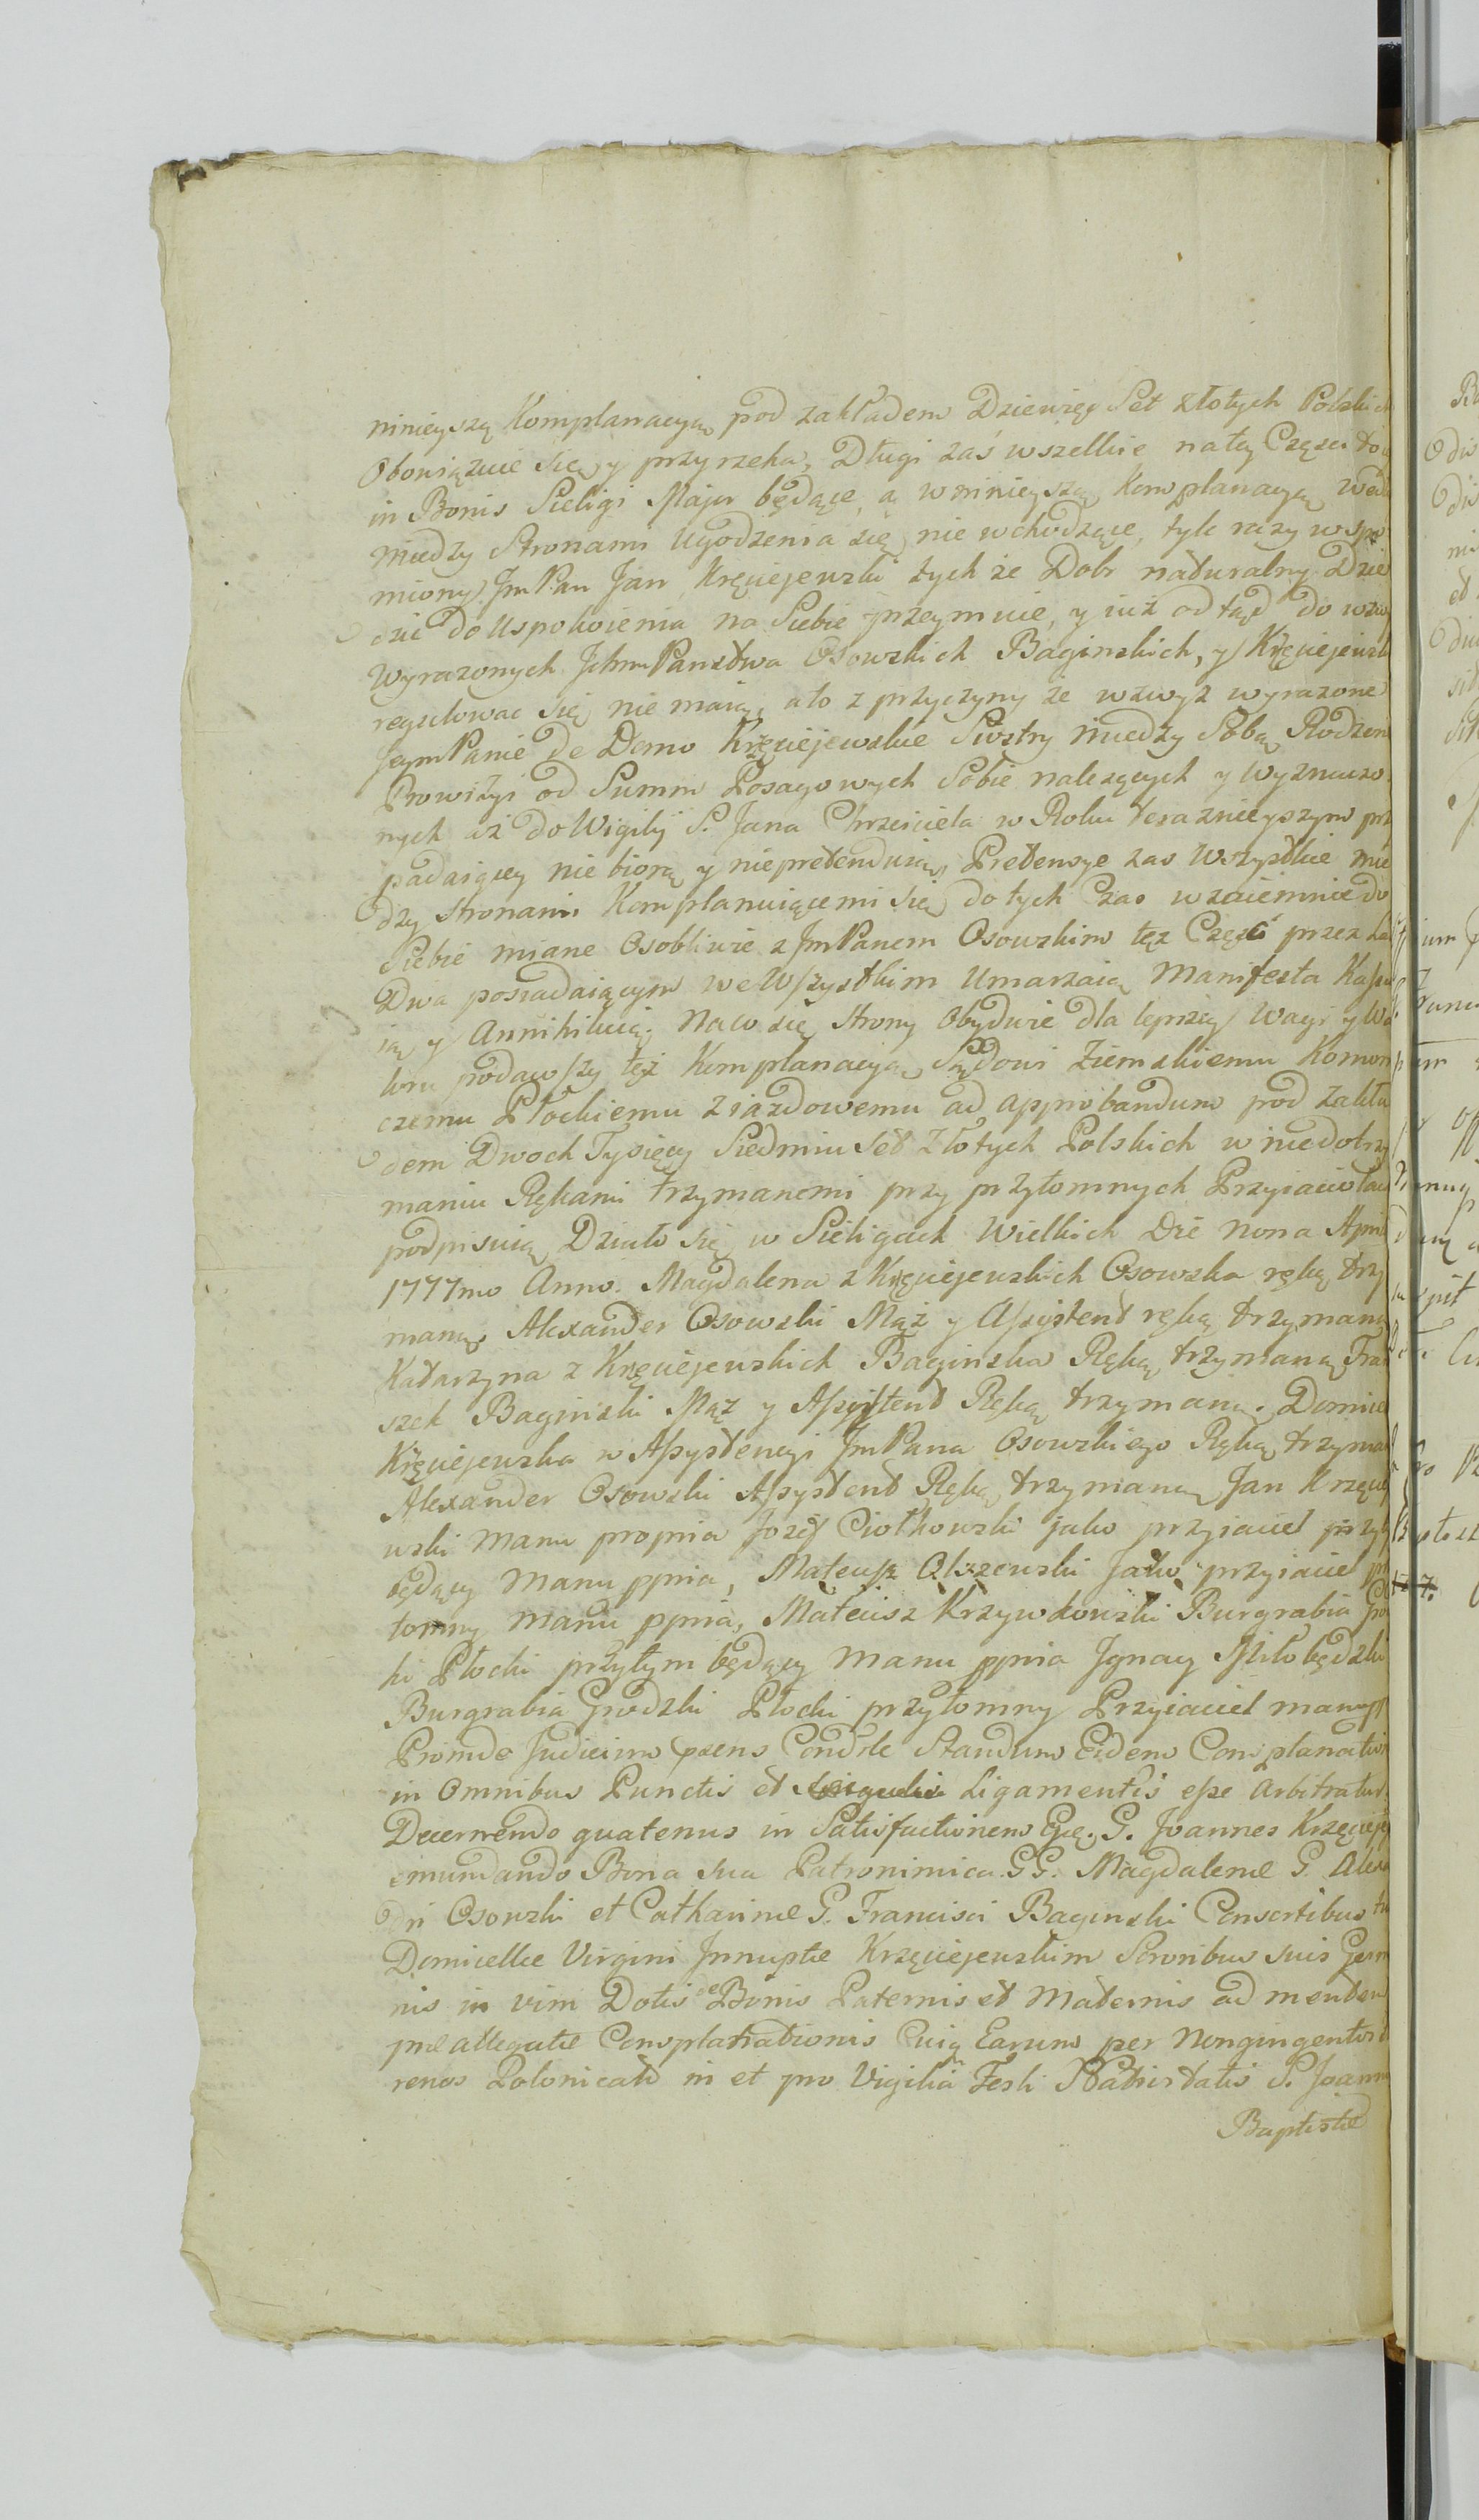 ninieyszą Komplanacyą pod zakładem Dziewięć Set Złotych Polskich
Obowiązuie się y przyrzeka, Długi zaś wszelkie na tey Części do
in Bonis Sieligi Major będące, a w ninieyszą Komplanacyą wedu
miedzy Stronami Ugodzenia się nie wchodzące, tyle razy wspo
miony Jm Pan Jan Kręciejewski tych że Dobr naturalny Dzie
dzic do Uspokoienia na Siebie przeymuie, y iuż od tąd do wzw
wyrazonych Jchm Panstwa Osowskich Baginskich, y Kręciejewsk
regulować się nie maią, a to z przyczyny że wzwyz wyrazone
Jeym Panie de Domo Kręciejewskie Siostry miedzy Sobą Rodzon
Prowizyi od Summ Posagowych Sobie nalezących y wyznaczo
nych aż do Wigilij S. Jana Chrzciciela w Roku teraznieyszym prz
padaiącey nie biorą y niepretenduią, Pretensye zas Wszystkie mie
dzy stronami Komplanuiącemi się do tych Czas wzaiemnie do
Siebie miane Osobliwie z Jm Panem Osowskim tęz Część przez Lat
Dwa posiadaiącym we Wszystkim Umarzaią Manifesta Kassu
ią y Annihiluią. Na co się Strony Obydwie dla lepszey Wagi y Wa
loru podawszy też Komplanacyą Sądowi Ziemskiemu Komorn
czemu Płockiemu Ziazdowemu ad approbandum pod Zakła
dem Dwoch Tysięcy Siedmiu Set Złotych Polskich w niedotrzy
maniu Rękami trzymanemi przy przytomnych Przyiaciołach
podpisuią Działo się w Sieligach Wielkich Die nona April
1777mo Anno. Magdalena z Kręciejewskich Osowska ręką trzy
maną Alexander Osowski Mąż y Assystent ręką trzymaną
Katarzyna z Kręciejewskich Baginska Ręką trzymaną Fran
szek Baginski Mąz y Assystent Ręką trzymaną. Domicel
Kręciejewska w Assystencyi Jm Pana Osowskiego Ręką trzyman
Alexander Osowski Assystent Ręką trzymaną Jan Krzęciej
wski Manu propria Jozef Ciołkowski jako przyiaciel przyt
będący Manu ppria, Mateusz Olszewski Jako przyiaciel prz
tomny Manu ppria, Mateusz Krzywkowski Burgrabia Gro
ki Płocki przytym będący Manu ppria Jgnacy Miłobędzki
Burgrabia Grodzki Płocki przytomny Przyiaciel manu pp
Proinde Judicium praesens Condsle Standum Eidem Complanation
in Omnibus Punctis et Ligamentis esse Arbitratur.
Decernendo quatenus in Satisfactionem Ejq. G. Joannes Krzęciej
emundando Bona sua Patronimica GG. Magdalenae G. Alexa
dri Osowski et Catharinae G. Francisci Baginski Consortibus tu
Domicellae Virgini Innuptae Krzęciejewskim Sororibus suis Germ
nis in vim Dotis de Bonis Paternis et Maternis ad mentem
prae allegatae Complanationis Cuiq Earum per Nongingentos
renos Polonicales in et pro Vigilia Festi Nativitatis S. Joann
Baptistae